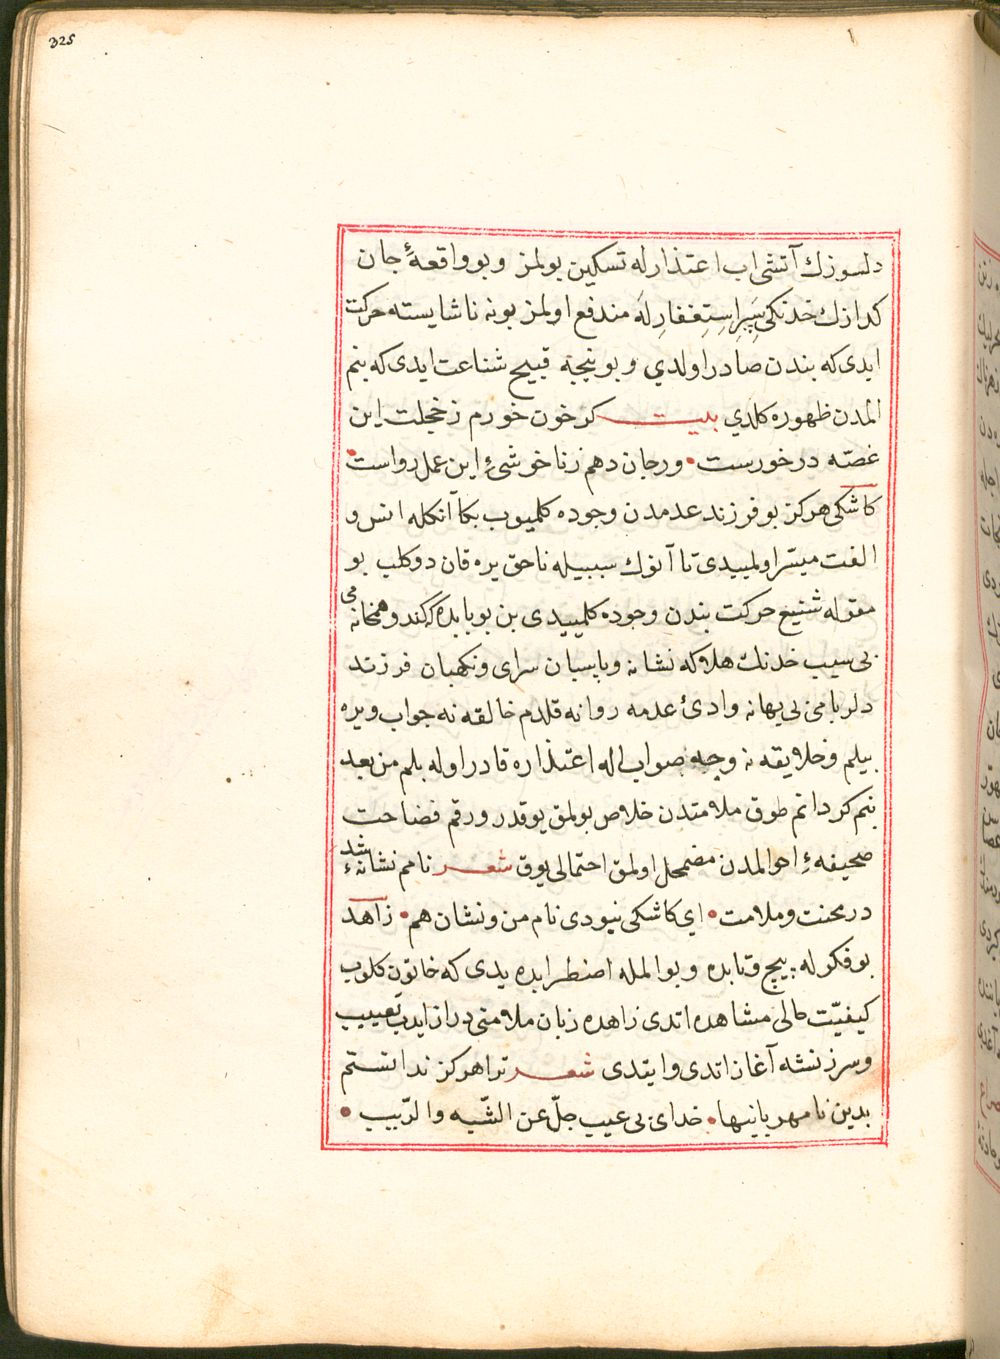 325
دلسوزك آتشی اب اعتذارله تسكین بولمز و بو واقعهٔ جان
كدازك خدنكی سپر استغفارله مندفع اولمز بو نه ناشایسته حركت
ایدی كه بندن صادر اولدی و بو نیجه قبیح شناعت ایدی كه بنم
المدن ظهوره كلدی بیت كر خون خورم ز خجلت این
غصّه در خورست • ور جان دهم ز ناخوشیٔ این عمل رواست •
كاشكی هركز بو فرزند عدمدن وجوده كلمیوب بكا آنكله انس و
الفت میسّر اولمیدی تا آنوك سببیله ناحق یره قان دوكلب بو
مقوله شنیع حركت بندن وجوده كلمیدی بن بو یابده كه كندو همخانه می
بی سبب خدنك هلاكه نشانه و پاسبان سرای و نكهبان فرزند
دلربامی بی بهانه وادیٔ عدمه روانه قلدم خالقه نه جواب ویره
بیلم و خلایقه نه وجه صواب اله اعتذاره قادر اوله بلم من بعد
بنم كردانم طوق ملامتدن خلاص بولمق یوقدر و رقم فضاحت
صحیفهٔ احوالمدن مضمحل اولمق احتمالی یوق شعر نامم نشانهٔ شد
در محنت و ملامت • ای كاشكی نبودی نام من و نشان هم • زاهد
بو فكرله پیچ و تابده و بو المله اضطرابده یدی كه خاتون كلوب
كیفیّت حالی مشاهده اتدی زاهده زبان ملامتی دراز ایدب تعییب
و سرزنشه آغاز اتدی و ایتدی شعر ترا هركز ندانستم
بدین نامهربانیها • خدای بی عیب جلّ عن الشّبه و الرّیب •